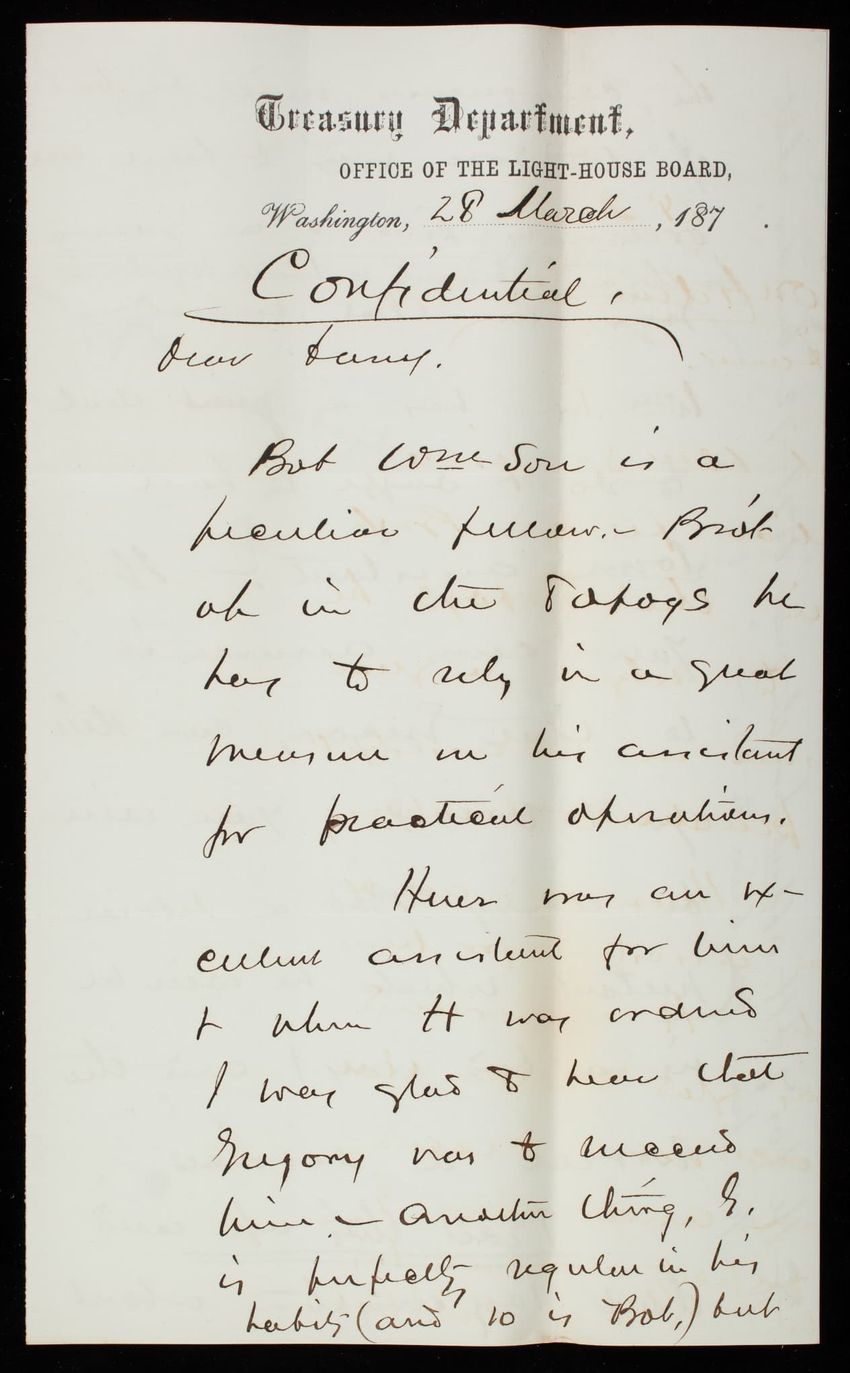 Treasury Department,
OFFICE OF THE LIGHT-HOUSE BOARD,
Washington, 28 March, 187 .
Confidential.
Dear
Bob Wmson is a
peculiar fellow. – Bro't
up in the Topogs he
has to rely in a great
measure on his assistant
for practical operations.
Heuer was an ex-
cellent assistant for him
& when H was ordered
I was glad to hear that
Gregory was to succeed
him. – Another thing, G.
is perfectly regular in his
habits (and so is Bob,) but